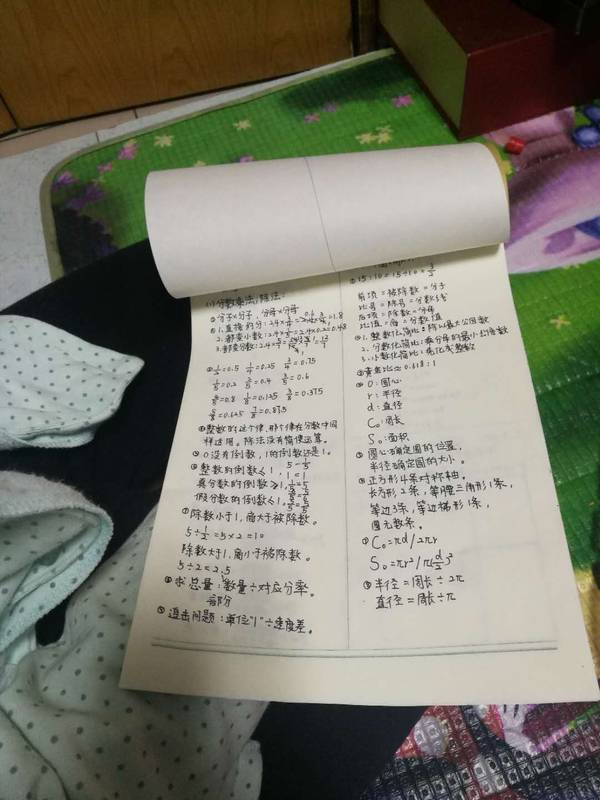 (一)分数乘法,除法:
①分子×分子,分母×分母
②1.直接约分:2.4×
2.都变小数:2.4×1/5=2.4×0.2=0.48
3.都变分数:2.4×
③1/2=0.5 1/4=0.25 3/4=0.75
1/5=0.2 2/5=0.4 3/5=0.6
4/5=0.8 1/8=0.125 3/8=0.375
5/8=0.625 7/8=0.875
④整数的这个律,那个律在分数中同
样适用。除法没有简便运算。
⑤0没有倒数,1的倒数还是1。
⑥整数的倒数≤1,
真分数的倒数>1,
假分数的倒数≤1。
⑦除数小于1,商大于被除数。
5÷1/2=5×2=10
除数大于1,商小于被除数。
5÷2=2.5
⑧求总量:数量÷对应分率。
部分
⑨追击问题:单位"1"÷速度差。
15:10=15÷10=3/2
前项=被除数=分子
比号=除号=分数线
后项=除数=分母
比值=商=分数值
1.整数化简比:除以最大公因数
2.分数化简比:乘分母的最小公倍数
3.小数化简比:先化变整数
黄金比≈0.618:1
O:圆心
r:半径
d:直径
C:周长
S:面积
圆心确定圆的位置,
半径确定圆的大小。
正方形4条对称轴,
长方形2条,等腰三角形1条,
等边3条,等边梯形1条,
圆无数条。
C=πd/2πr
S=πr²/π(d/2)²
半径=周长÷2π
直径=周长÷π